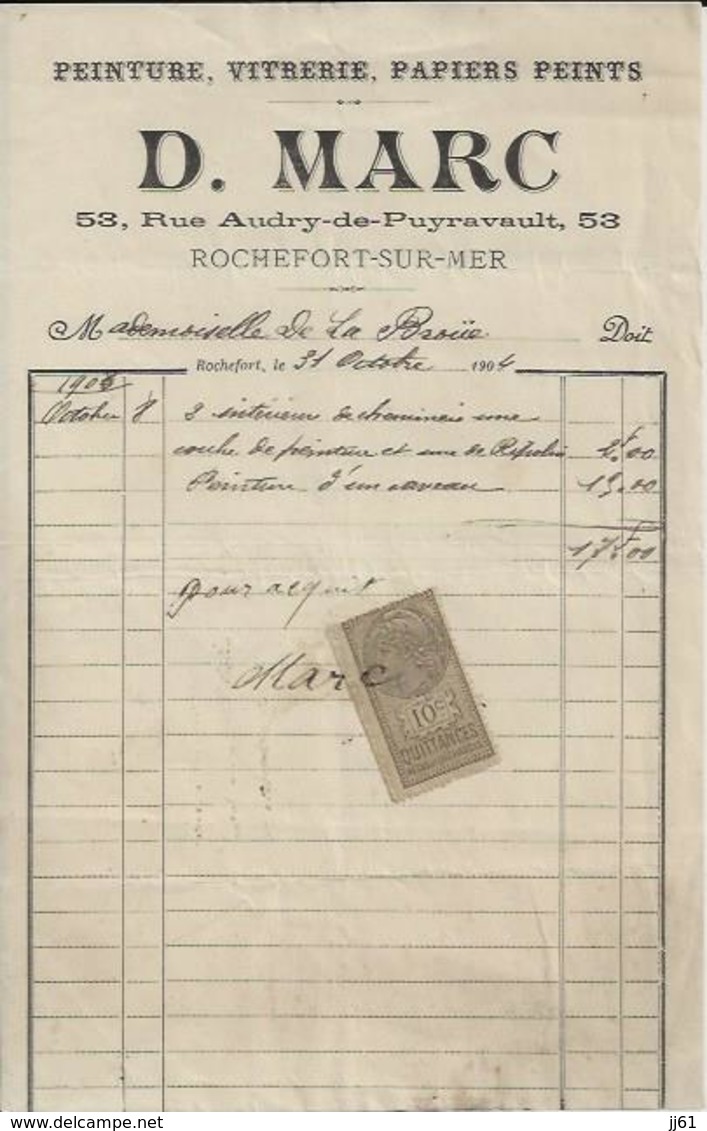 PEINTURE, VITRERIE, PAPIERS PEINTS
D. MARC
53, Rue Audry-de-Puyravault, 53
ROCHEFORT-SUR-MER
Mademoiselle De La Broüe Doit
Rochefort, le 31 Octobre 1904
Octobre 8 intérieur de cheminée une
couche de peinture et une de Ripolin .00
Peinture d'un caveau .00
17f00
pour acquit
Marc
10c
QUITTANCES
delcampe.net
jj61